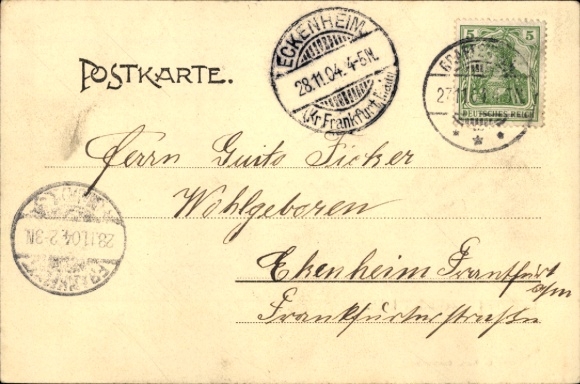 POSTKARTE.
ECKENHEIM
28.11.04. 4-5N.
(Kr. Frankfurt
5 5
DEUTSCHES REICH
27.11.04
Herrn Guito Ficker
Wohlgeboren
28.11.04.2-3N.
Ekenheim Frankfurt
a/m
Frankfurterstraße